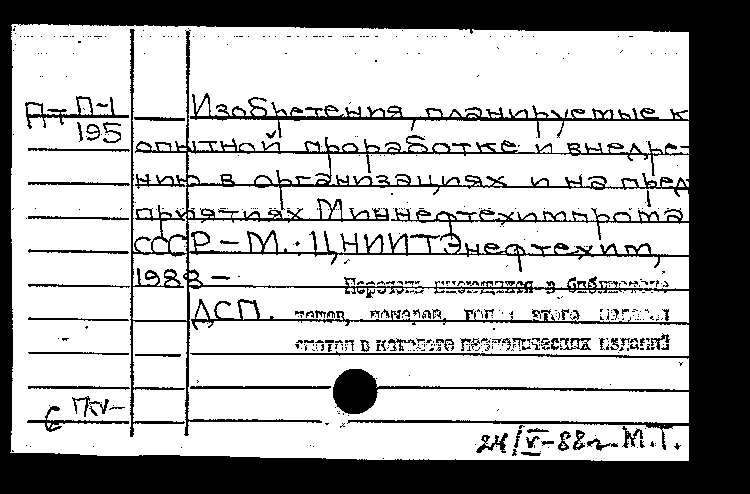 Пт П-1
195
Изобретения, планируемые к
опытной проработке и внедре-
нию в организациях и на пред-
приятиях Миннефтехимпрома
СССР - М.: ЦНИИТЭнефтехим,
1988 -
ДСП.
Перечень имеющихся в библиотеке
томов, номеров, годов этого издания
смотри в каталоге периодических изданий
24/V-88г. М.Т.